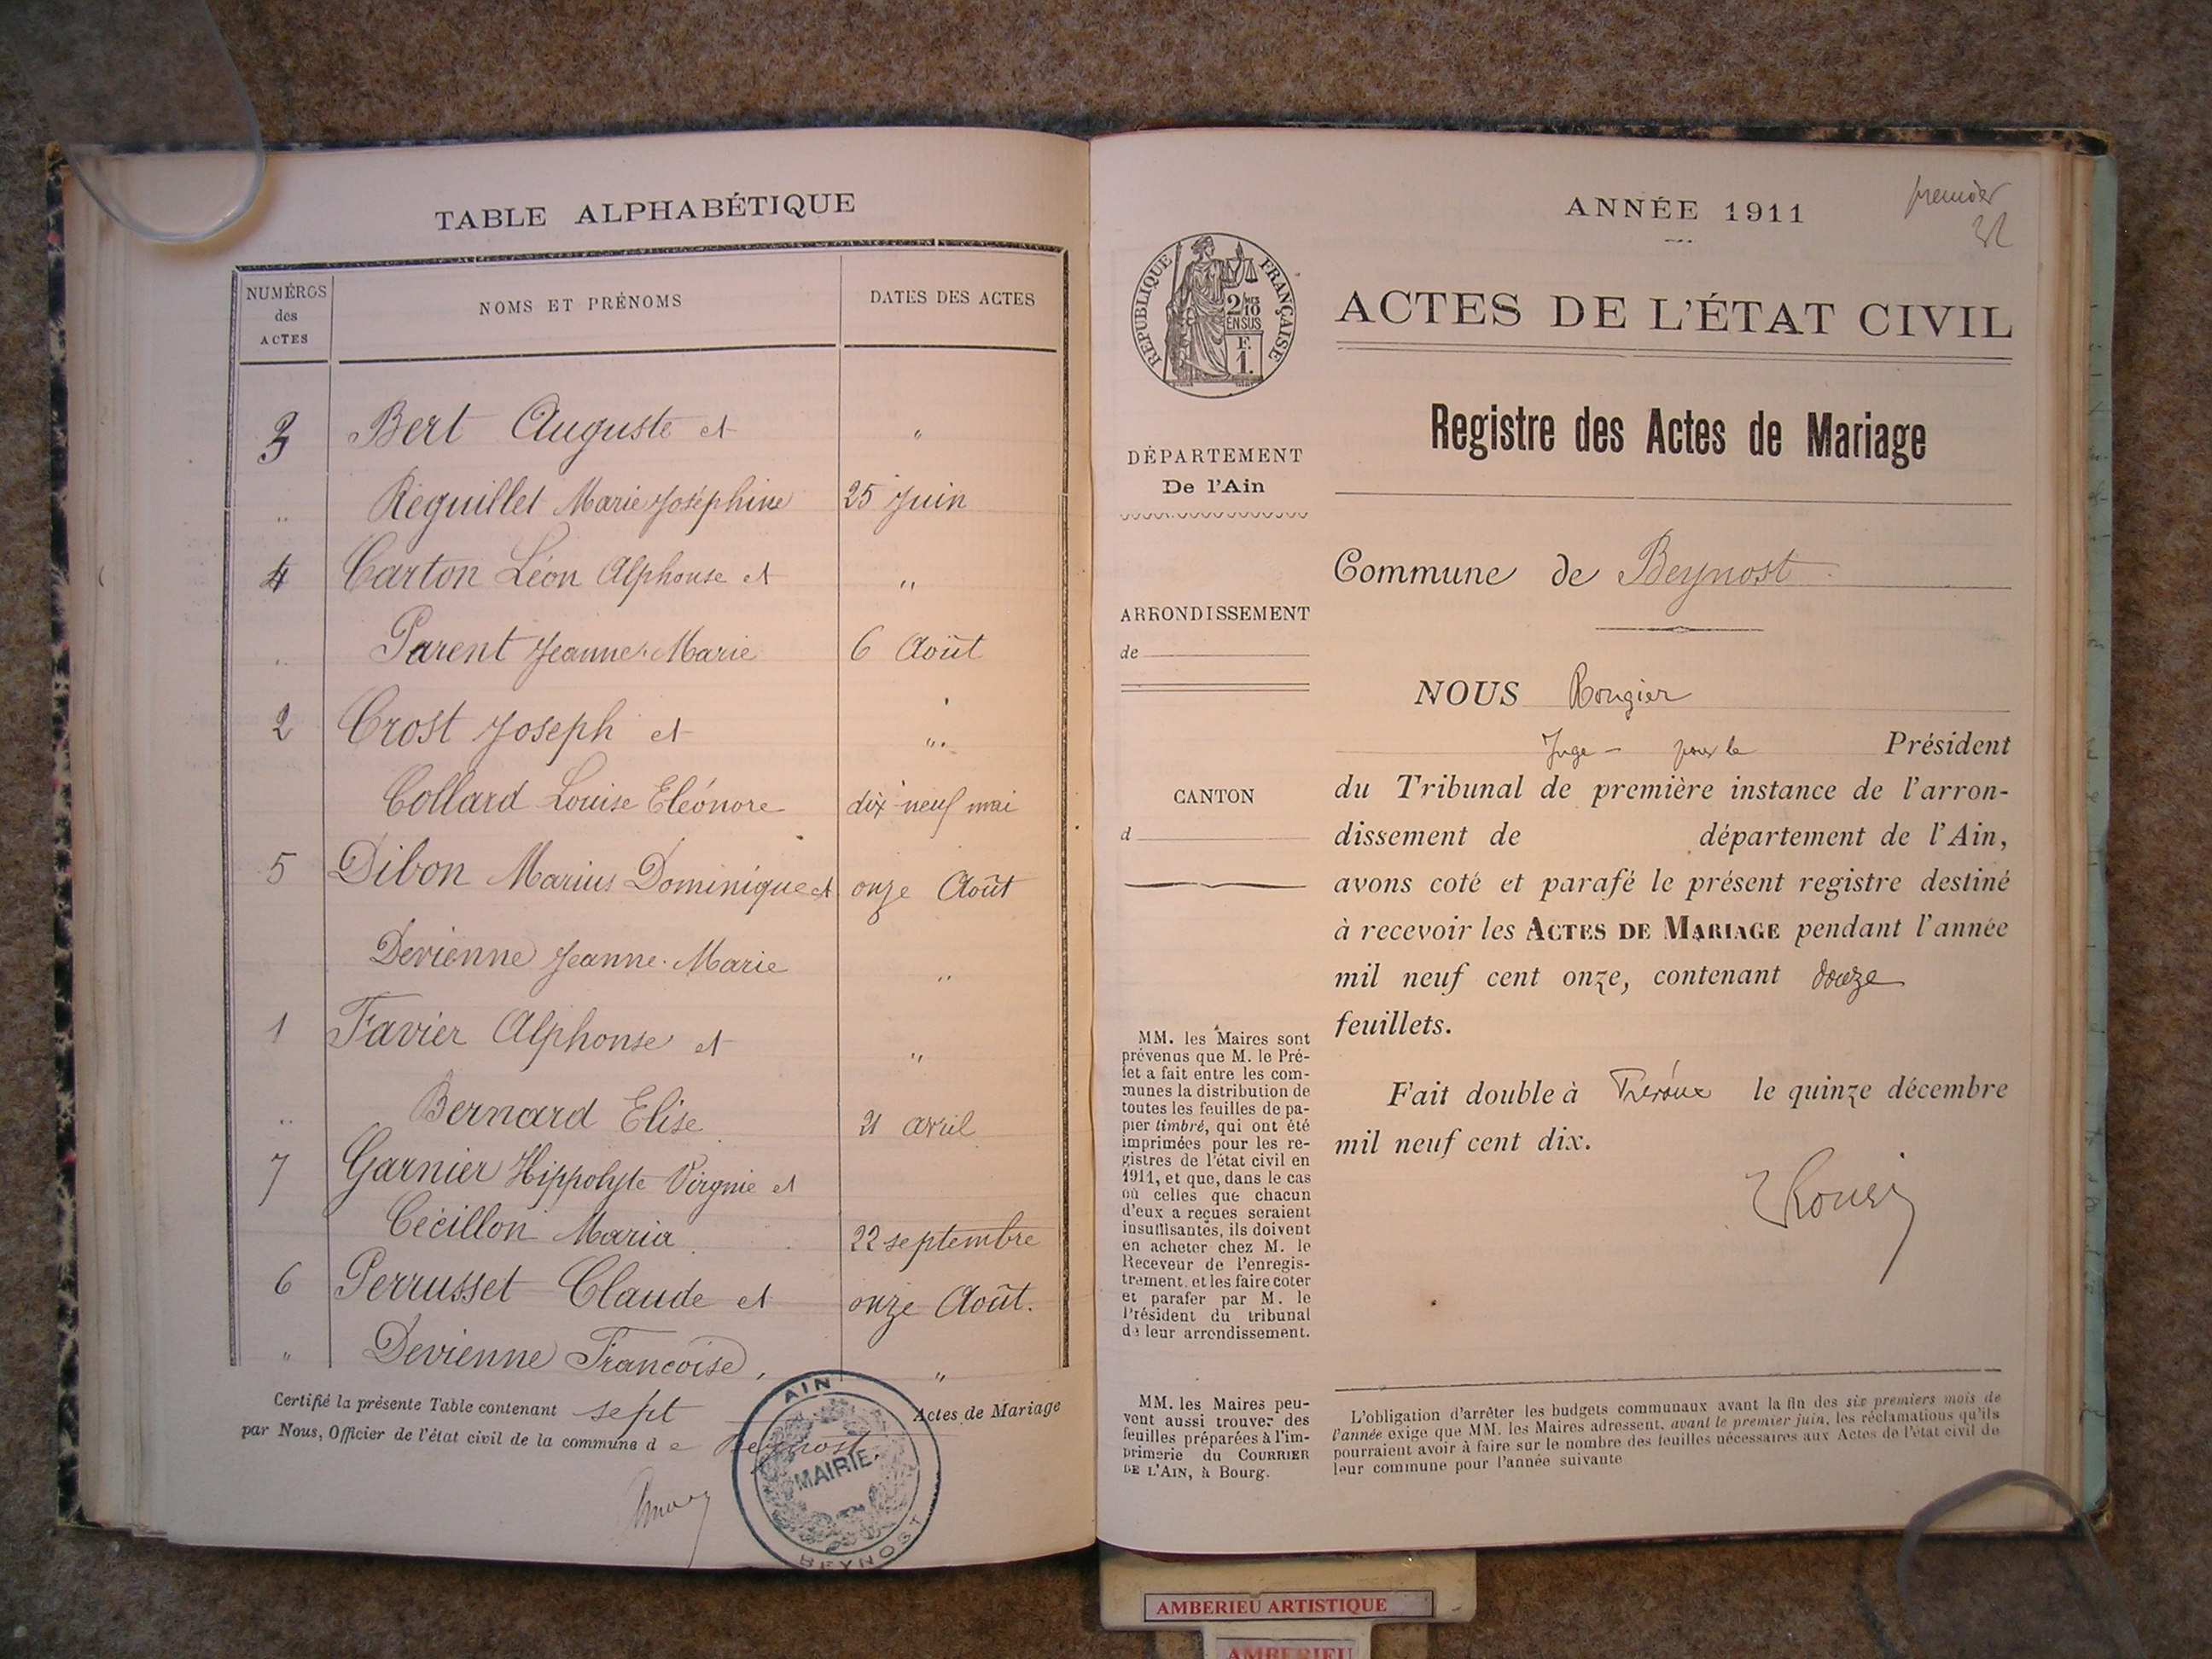 TABLE ALPHABÉTIQUE
NUMÉROS des ACTES
NOMS ET PRÉNOMS
DATES DES ACTES
3 Bert Auguste et "
" Reguillet Marie Joséphine 25 Juin
4 Carton Léon Alphonse et "
" Parent Jeanne Marie 6 Août
2 Crost Joseph et "
Collard Louise Eléonore dix neuf mai
5 Dibon Marius Dominique et onze Août
Devienne Jeanne-Marie "
1 Favier Alphonse et "
" Bernard Elise 21 avril
7 Garnier Hippolyte Virgnie et
Cécillon Maria 22 septembre
6 Perrusset Claude et onze Août.
" Devienne Francoise, "
Certifié la présente Table contenant sept Actes de Mariage
par Nous, Officier de l'état civil de la commune de Beynost
AIN
MAIRIE
BEYNOST
premier
ANNÉE 1911
RÉPUBLIQUE FRANÇAISE
2/10
EN SUS
F.
1.
ACTES DE L'ÉTAT CIVIL
Registre des Actes de Mariage
DÉPARTEMENT
De l'Ain
Commune de Beynost
ARRONDISSEMENT
de
NOUS Rougier
Juge - pour le Président
CANTON
d
du Tribunal de première instance de l'arron-
dissement de département de l'Ain,
avons coté et parafé le présent registre destiné
à recevoir les ACTES DE MARIAGE pendant l'année
mil neuf cent onze, contenant douze
feuillets.
Fait double à Trévoux le quinze décembre
mil neuf cent dix.
MM. les Maires sont
prévenus que M. le Pré-
fet a fait entre les com-
munes la distribution de
toutes les feuilles de pa-
pier timbré, qui ont été
imprimées pour les re-
gistres de l'état civil en
1911, et que, dans le cas
où celles que chacun
d'eux a reçues seraient
insuffisantes, ils doivent
en acheter chez M. le
Receveur de l'enregis-
trement, et les faire coter
et parafer par M. le
Président du tribunal
de leur arrondissement.
MM. les Maires peu-
vent aussi trouver des
feuilles préparées à l'im-
primerie du COURRIER
DE L'AIN, à Bourg.
L'obligation d'arrêter les budgets communaux avant la fin des six premiers mois de
l'année exige que MM. les Maires adressent, avant le premier juin, les réclamations qu'ils
pourraient avoir à faire sur le nombre des feuilles nécessaires aux Actes de l'état civil de
leur commune pour l'année suivante
AMBERIEU ARTISTIQUE
AMBERIEU